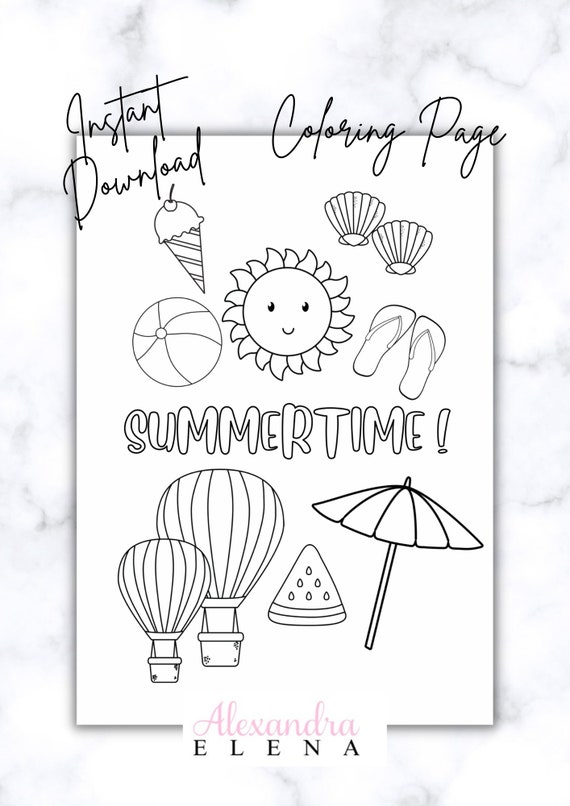 Instant
Download
Coloring Page
SUMMERTIME!
Alexandra
ELENA